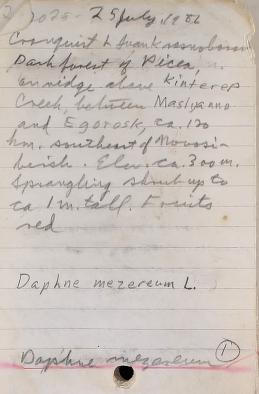 2025- 25 July 1986
Cronquist &
Dark forest of Picea
on ridge above Kinterep
Creek, between Maslyanno
and Egorosk, ca. 120
km. southeast of Novosi-
birsk. Elev. ca. 300 m.
Sprangling shrub up to
ca 1 m. tall. Fruits
red
Daphne mezereum L.
Daphne mezereum 1